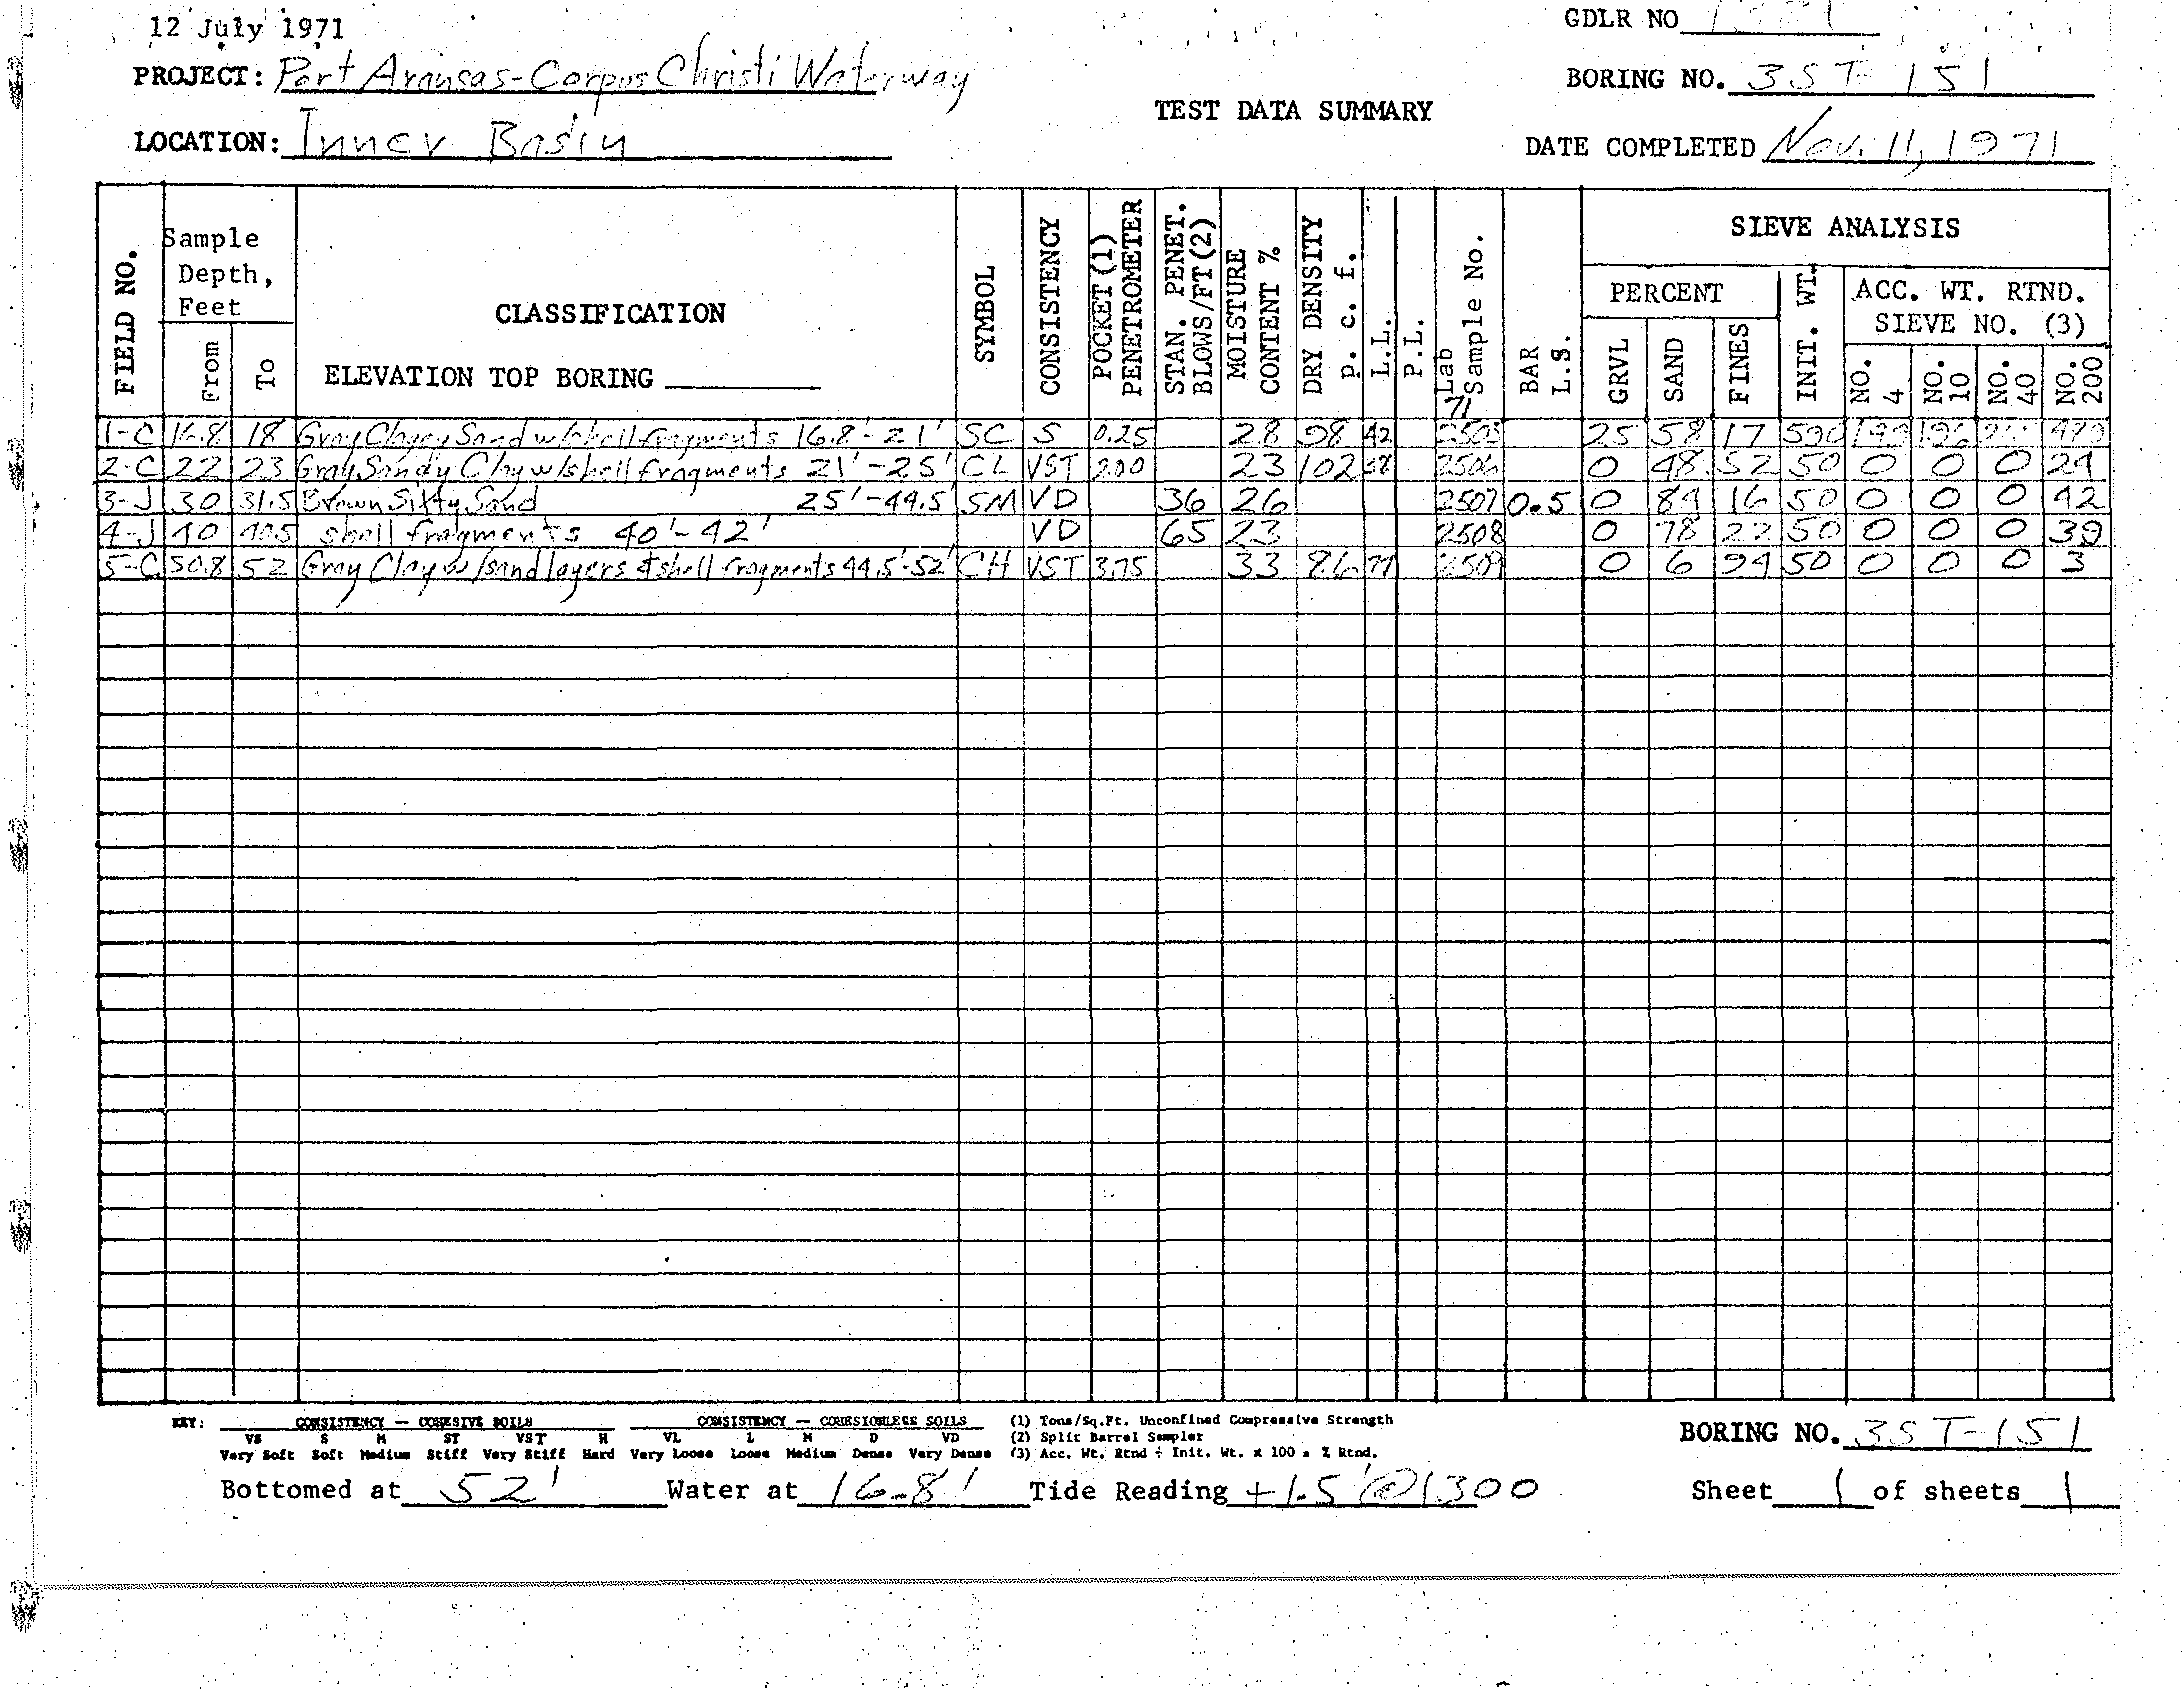 12 July 1971
GDLR NO
PROJECT: Port Aransas-Corpus Christi Waterway
BORING NO. 3ST-151
TEST DATA SUMMARY
LOCATION: Inner Basin
DATE COMPLETED Nov. 11, 1971
FIELD NO. Sample Depth, Feet From To CLASSIFICATION ELEVATION TOP BORING SYMBOL CONSISTENCY POCKET (1) PENETROMETER STAN. PENET. BLOWS/FT(2) MOISTURE CONTENT % DRY DENSITY p. c. f. L.L. P.L. Lab Sample No. BAR L.S. SIEVE ANALYSIS PERCENT GRVL SAND FINES INIT. WT. ACC. WT. RTND. SIEVE NO. (3) NO. 4 NO. 10 NO. 40 NO. 200
71
1-C 16.8 18 Gray Clayey Sand w/shell fragments 16.8'-21' SC S 0.25 28 98 42 2505 25 58 17 590
2-C 22 23 Gray Sandy Clay w/shell fragments 21'-25' CL VST 2.00 23 102 2506 0 48 52 50 0 0 0 24
3-J 30 31.5 Brown Silty Sand 25'-44.5' SM VD 36 26 2507 0.5 0 84 16 50 0 0 0 42
4-J 40 shell fragments 40'-42' VD 65 23 2508 0 78 22 50 0 0 0 39
5-C 50.8 52 Gray Clay w/sand layers & shell fragments 44.5'-52' CH VST 3.75 33 86 2509 0 6 94 50 0 0 0 3
KEY: CONSISTENCY — COHESIVE SOILS CONSISTENCY — COHESIONLESS SOILS (1) Tons/Sq.Ft. Unconfined Compressive Strength
VS S M ST VST H VL L M D VD (2) Split Barrel Sampler
Very Soft Soft Medium Stiff Very Stiff Hard Very Loose Loose Medium Dense Very Dense (3) Acc. Wt. Rtnd ÷ Init. Wt. x 100 = % Rtnd.
BORING NO. 3ST-151
Bottomed at 52' Water at 16.8' Tide Reading +1.5' @ 1300 Sheet 1 of sheets 1